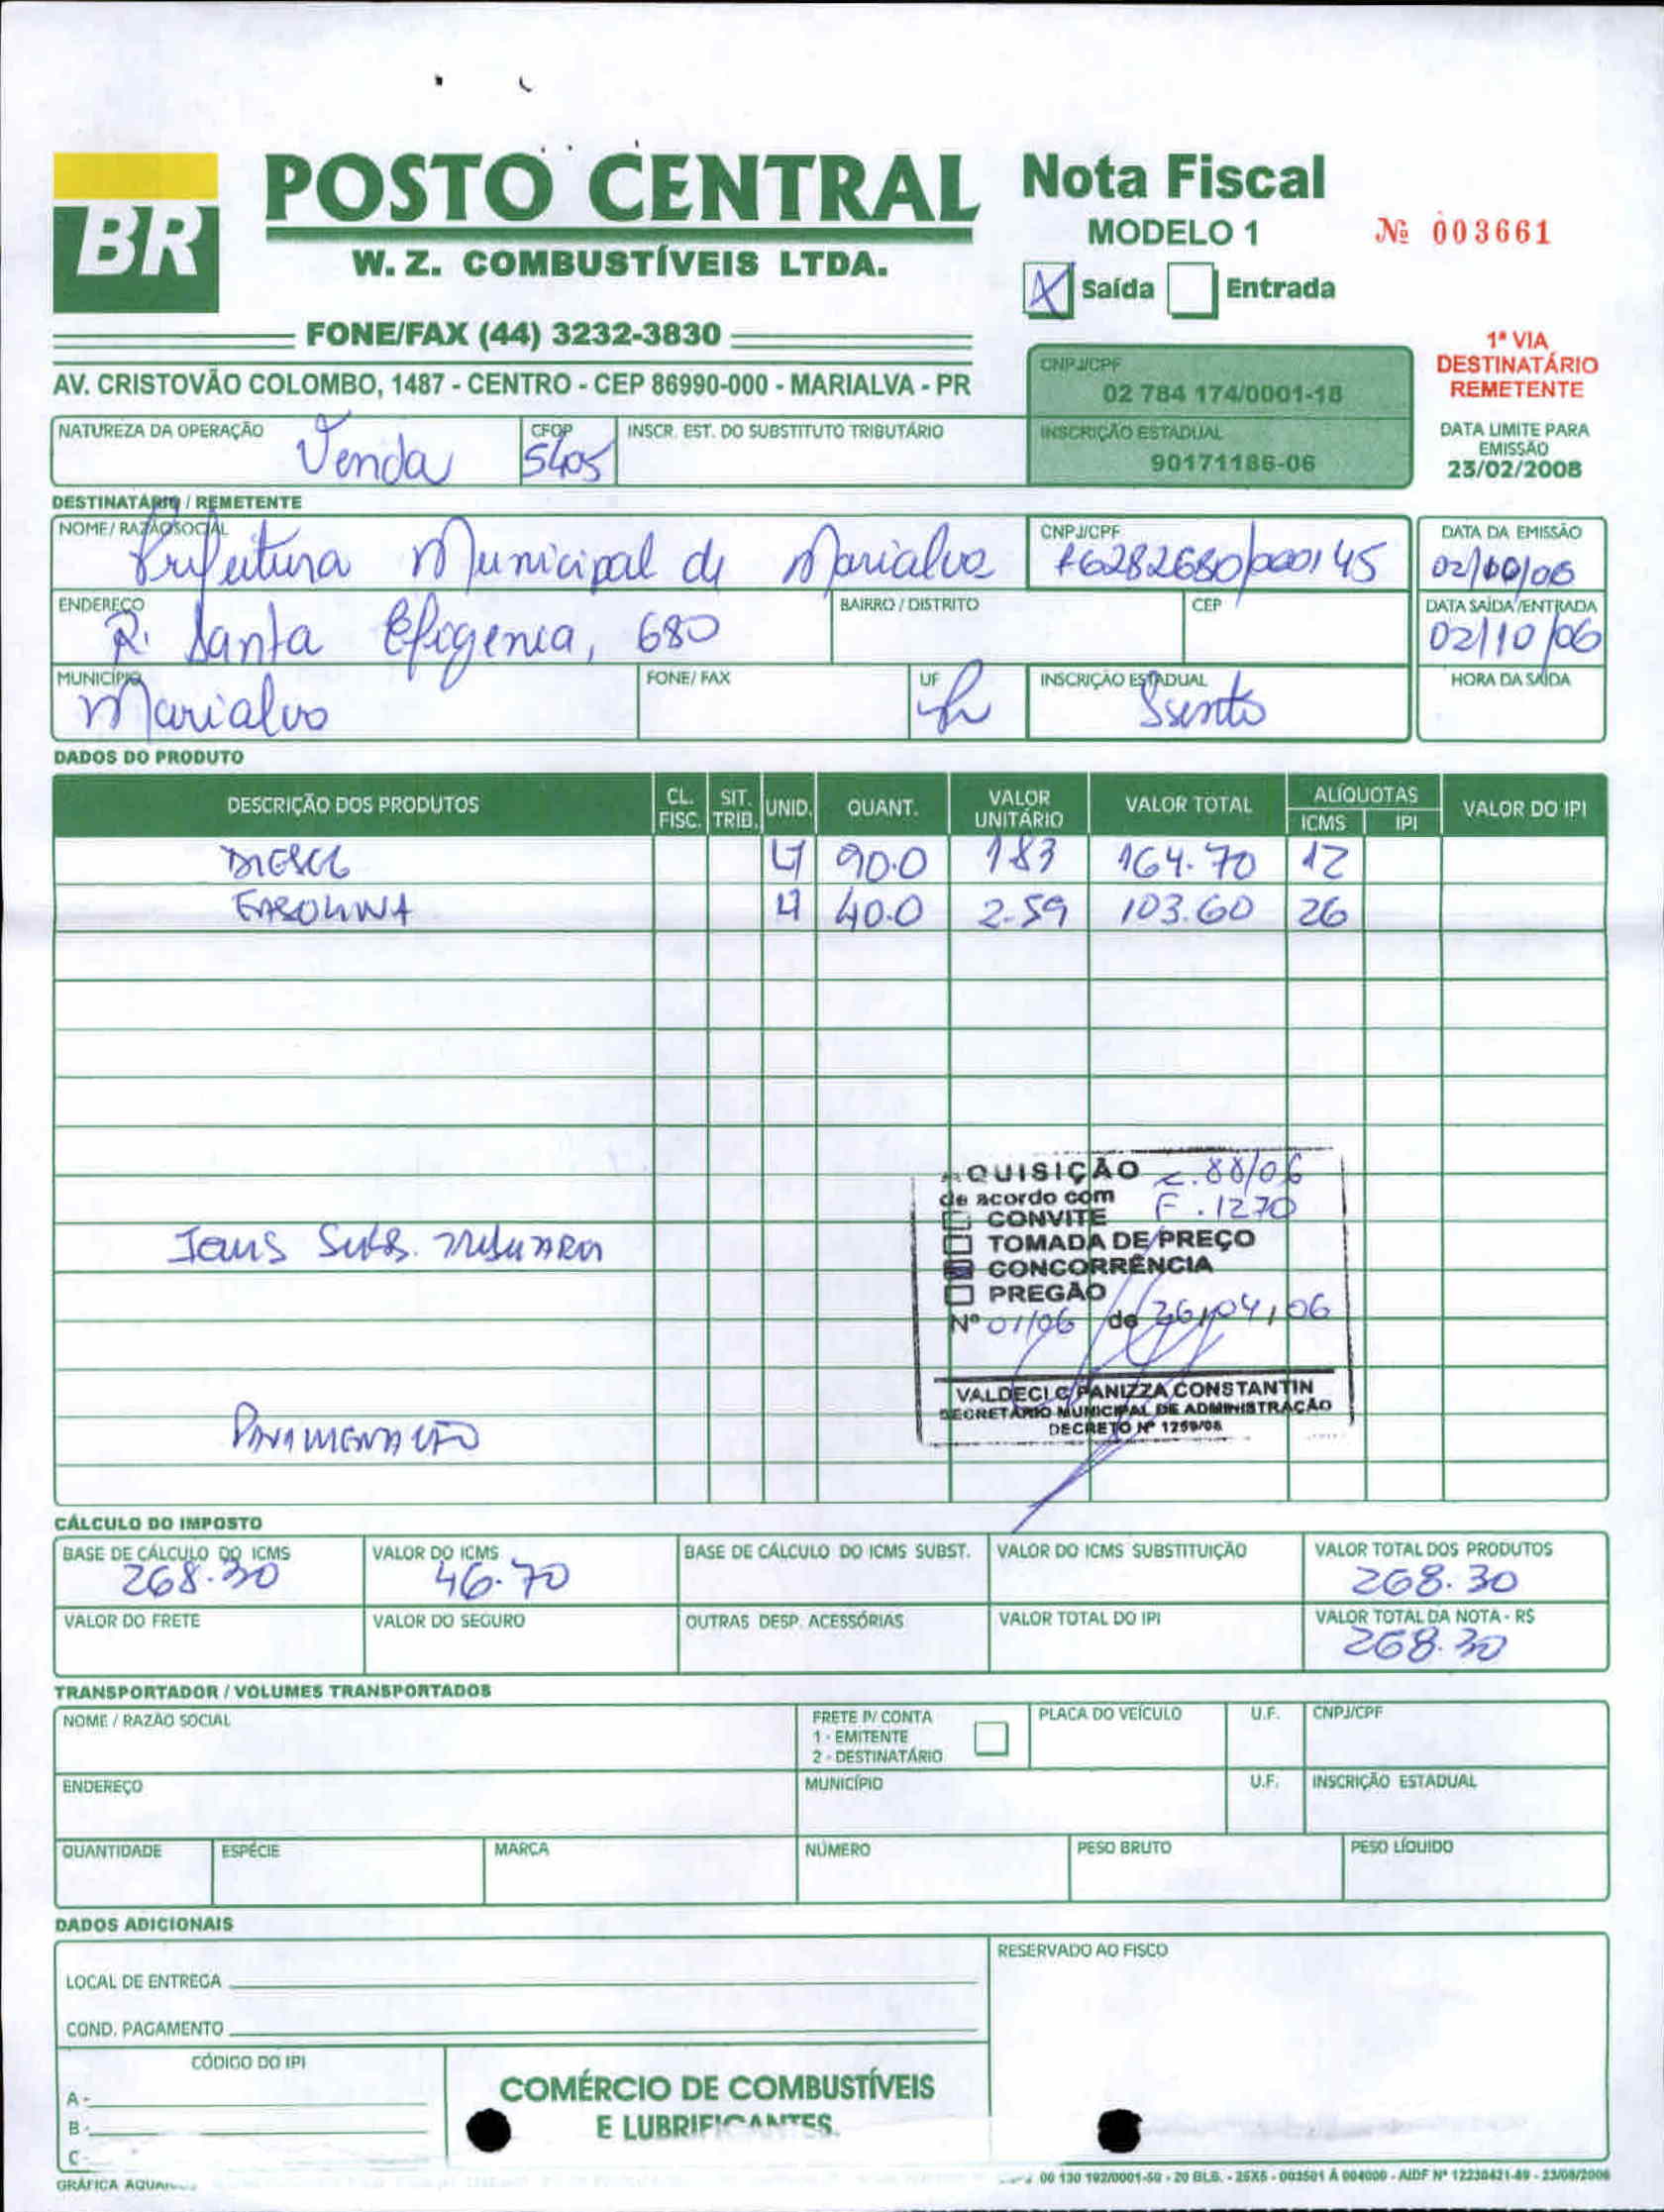 BR
POSTO CENTRAL
W. Z. COMBUSTÍVEIS LTDA.
FONE/FAX (44) 3232-3830
AV. CRISTOVÃO COLOMBO, 1487 - CENTRO - CEP 86990-000 - MARIALVA - PR
Nota Fiscal
MODELO 1
Nº 003661
X Saída Entrada
1ª VIA
DESTINATÁRIO
REMETENTE
CNPJ/CPF
02 784 174/0001-18
INSCRIÇÃO ESTADUAL
90171186-06
DATA LIMITE PARA
EMISSÃO
23/02/2008
NATUREZA DA OPERAÇÃO Venda
CFOP 5405
INSCR. EST. DO SUBSTITUTO TRIBUTÁRIO
DESTINATÁRIO / REMETENTE
NOME/ RAZÃO SOCIAL
Prefeitura Municipal de Marialva
CNPJ/CPF
76282680/000145
DATA DA EMISSÃO
02/10/06
ENDEREÇO
R. Santa Efigenia, 680
BAIRRO / DISTRITO
CEP
DATA SAÍDA/ENTRADA
02/10/06
MUNICÍPIO
Marialva
FONE/ FAX
UF
Pr
INSCRIÇÃO ESTADUAL
Isento
HORA DA SAÍDA
DADOS DO PRODUTO
DESCRIÇÃO DOS PRODUTOS CL. FISC. SIT. TRIB. UNID. QUANT. VALOR UNITÁRIO VALOR TOTAL ALÍQUOTAS ICMS IPI VALOR DO IPI
DIESEL LT 90.0 183 164.70 12
GASOLINA LT 40.0 2.59 103.60 26
AQUISIÇÃO C.88/06
de acordo com F.1270
CONVITE
TOMADA DE PREÇO
CONCORRÊNCIA
PREGÃO
Nº 01/06 de 26/04/06
VALDECI C PANIZZA CONSTANTIN
SECRETÁRIO MUNICIPAL DE ADMINISTRAÇÃO
DECRETO Nº 1259/05
Icms Subs. Tributaria
PAVIMENTAÇÃO
CÁLCULO DO IMPOSTO
BASE DE CÁLCULO DO ICMS
268.30
VALOR DO ICMS
46.70
BASE DE CÁLCULO DO ICMS SUBST.
VALOR DO ICMS SUBSTITUIÇÃO
VALOR TOTAL DOS PRODUTOS
268.30
VALOR DO FRETE
VALOR DO SEGURO
OUTRAS DESP. ACESSÓRIAS
VALOR TOTAL DO IPI
VALOR TOTAL DA NOTA - R$
268.30
TRANSPORTADOR / VOLUMES TRANSPORTADOS
NOME / RAZÃO SOCIAL
FRETE P/ CONTA
1 - EMITENTE
2 - DESTINATÁRIO
PLACA DO VEÍCULO
U.F.
CNPJ/CPF
ENDEREÇO
MUNICÍPIO
U.F.
INSCRIÇÃO ESTADUAL
QUANTIDADE
ESPÉCIE
MARCA
NÚMERO
PESO BRUTO
PESO LÍQUIDO
DADOS ADICIONAIS
LOCAL DE ENTREGA
COND. PAGAMENTO
RESERVADO AO FISCO
CÓDIGO DO IPI
A-
B-
C-
COMÉRCIO DE COMBUSTÍVEIS
E LUBRIFICANTES.
GRÁFICA
00 130 192/0001-50 - 20 BLS. - 25X5 - 003501 À 004000 - AIDF Nº 12230421-49 - 23/08/2006